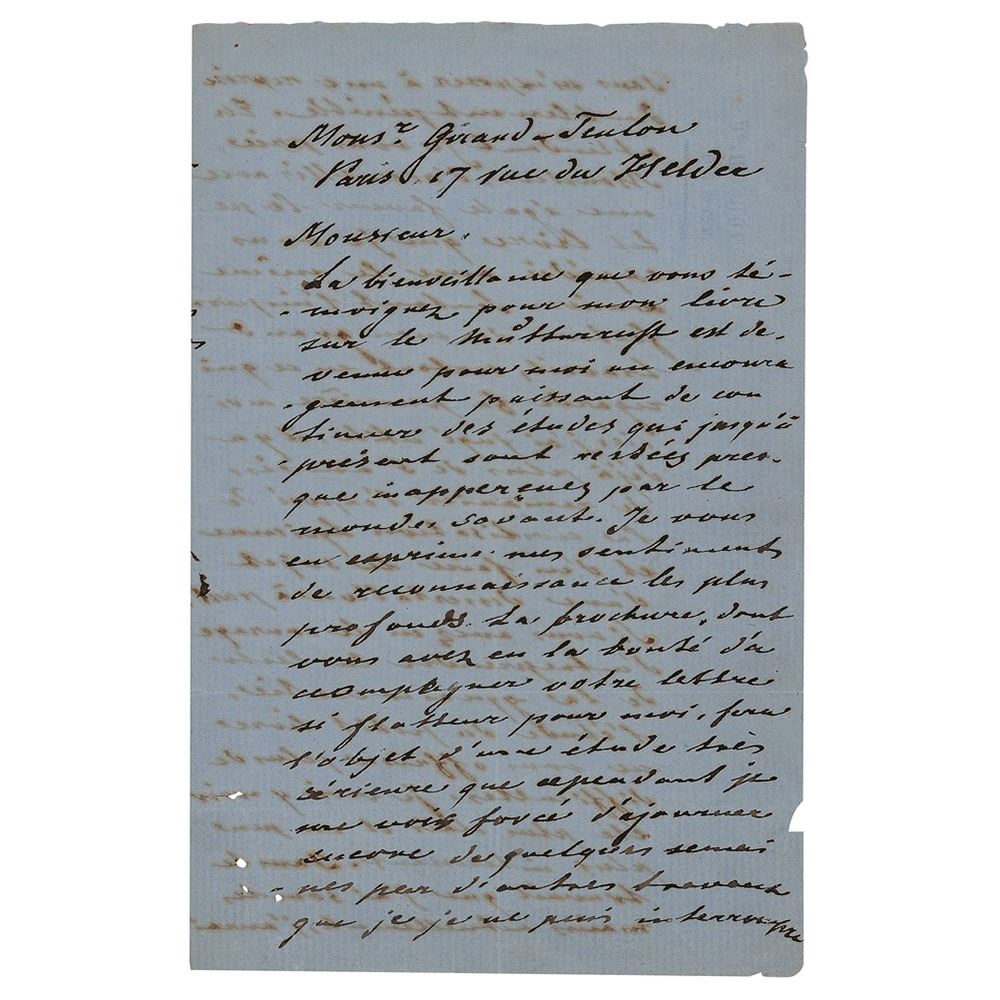 Monsr. Giraud-Teulon
Paris 17 rue du Helder
Monsieur.
La bienveillance que vous té-
moignez pour mon livre
sur le Mutterrecht est de-
venue pour moi un encoura
gement puissant de con
tinuer des études qui jusqu'à
présent sont restées pres-
que inapperçues par le
monde savant. Je vous
en exprime mes sentiments
de reconnaissance les plus
profonds. La brochure, dont
vous avez eu la bonté d'a
ccompagner votre lettre
si flatteur pour moi, sera
l'objet d'une étude très
sérieuse que cependant je
me vois forcé d'ajourner
encore de quelques semai
nes par d'autres travaux
que je je ne puis interrompre